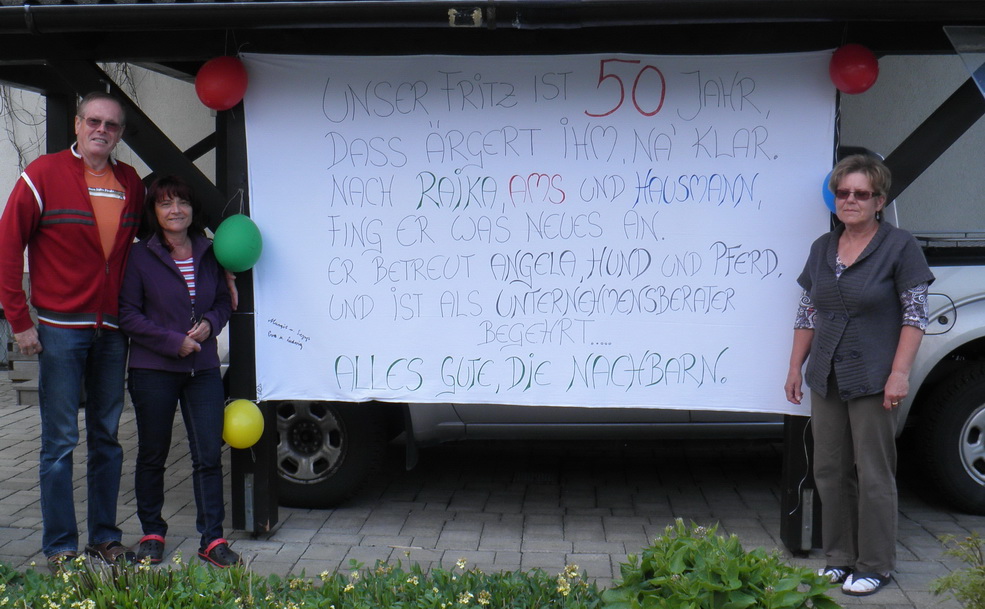 UNSER FRITZ IST 50 JAHR,
DASS ÄRGERT IHM, NA' KLAR.
NACH RAIKA, AMS UND HAUSMANN,
FING ER WAS NEUES AN.
ER BETREUT ANGELA, HUND UND PFERD,
UND IST ALS UNTERNEHMENSBERATER
BEGEHRT.....
ALLES GUTE, DIE NACHBARN.